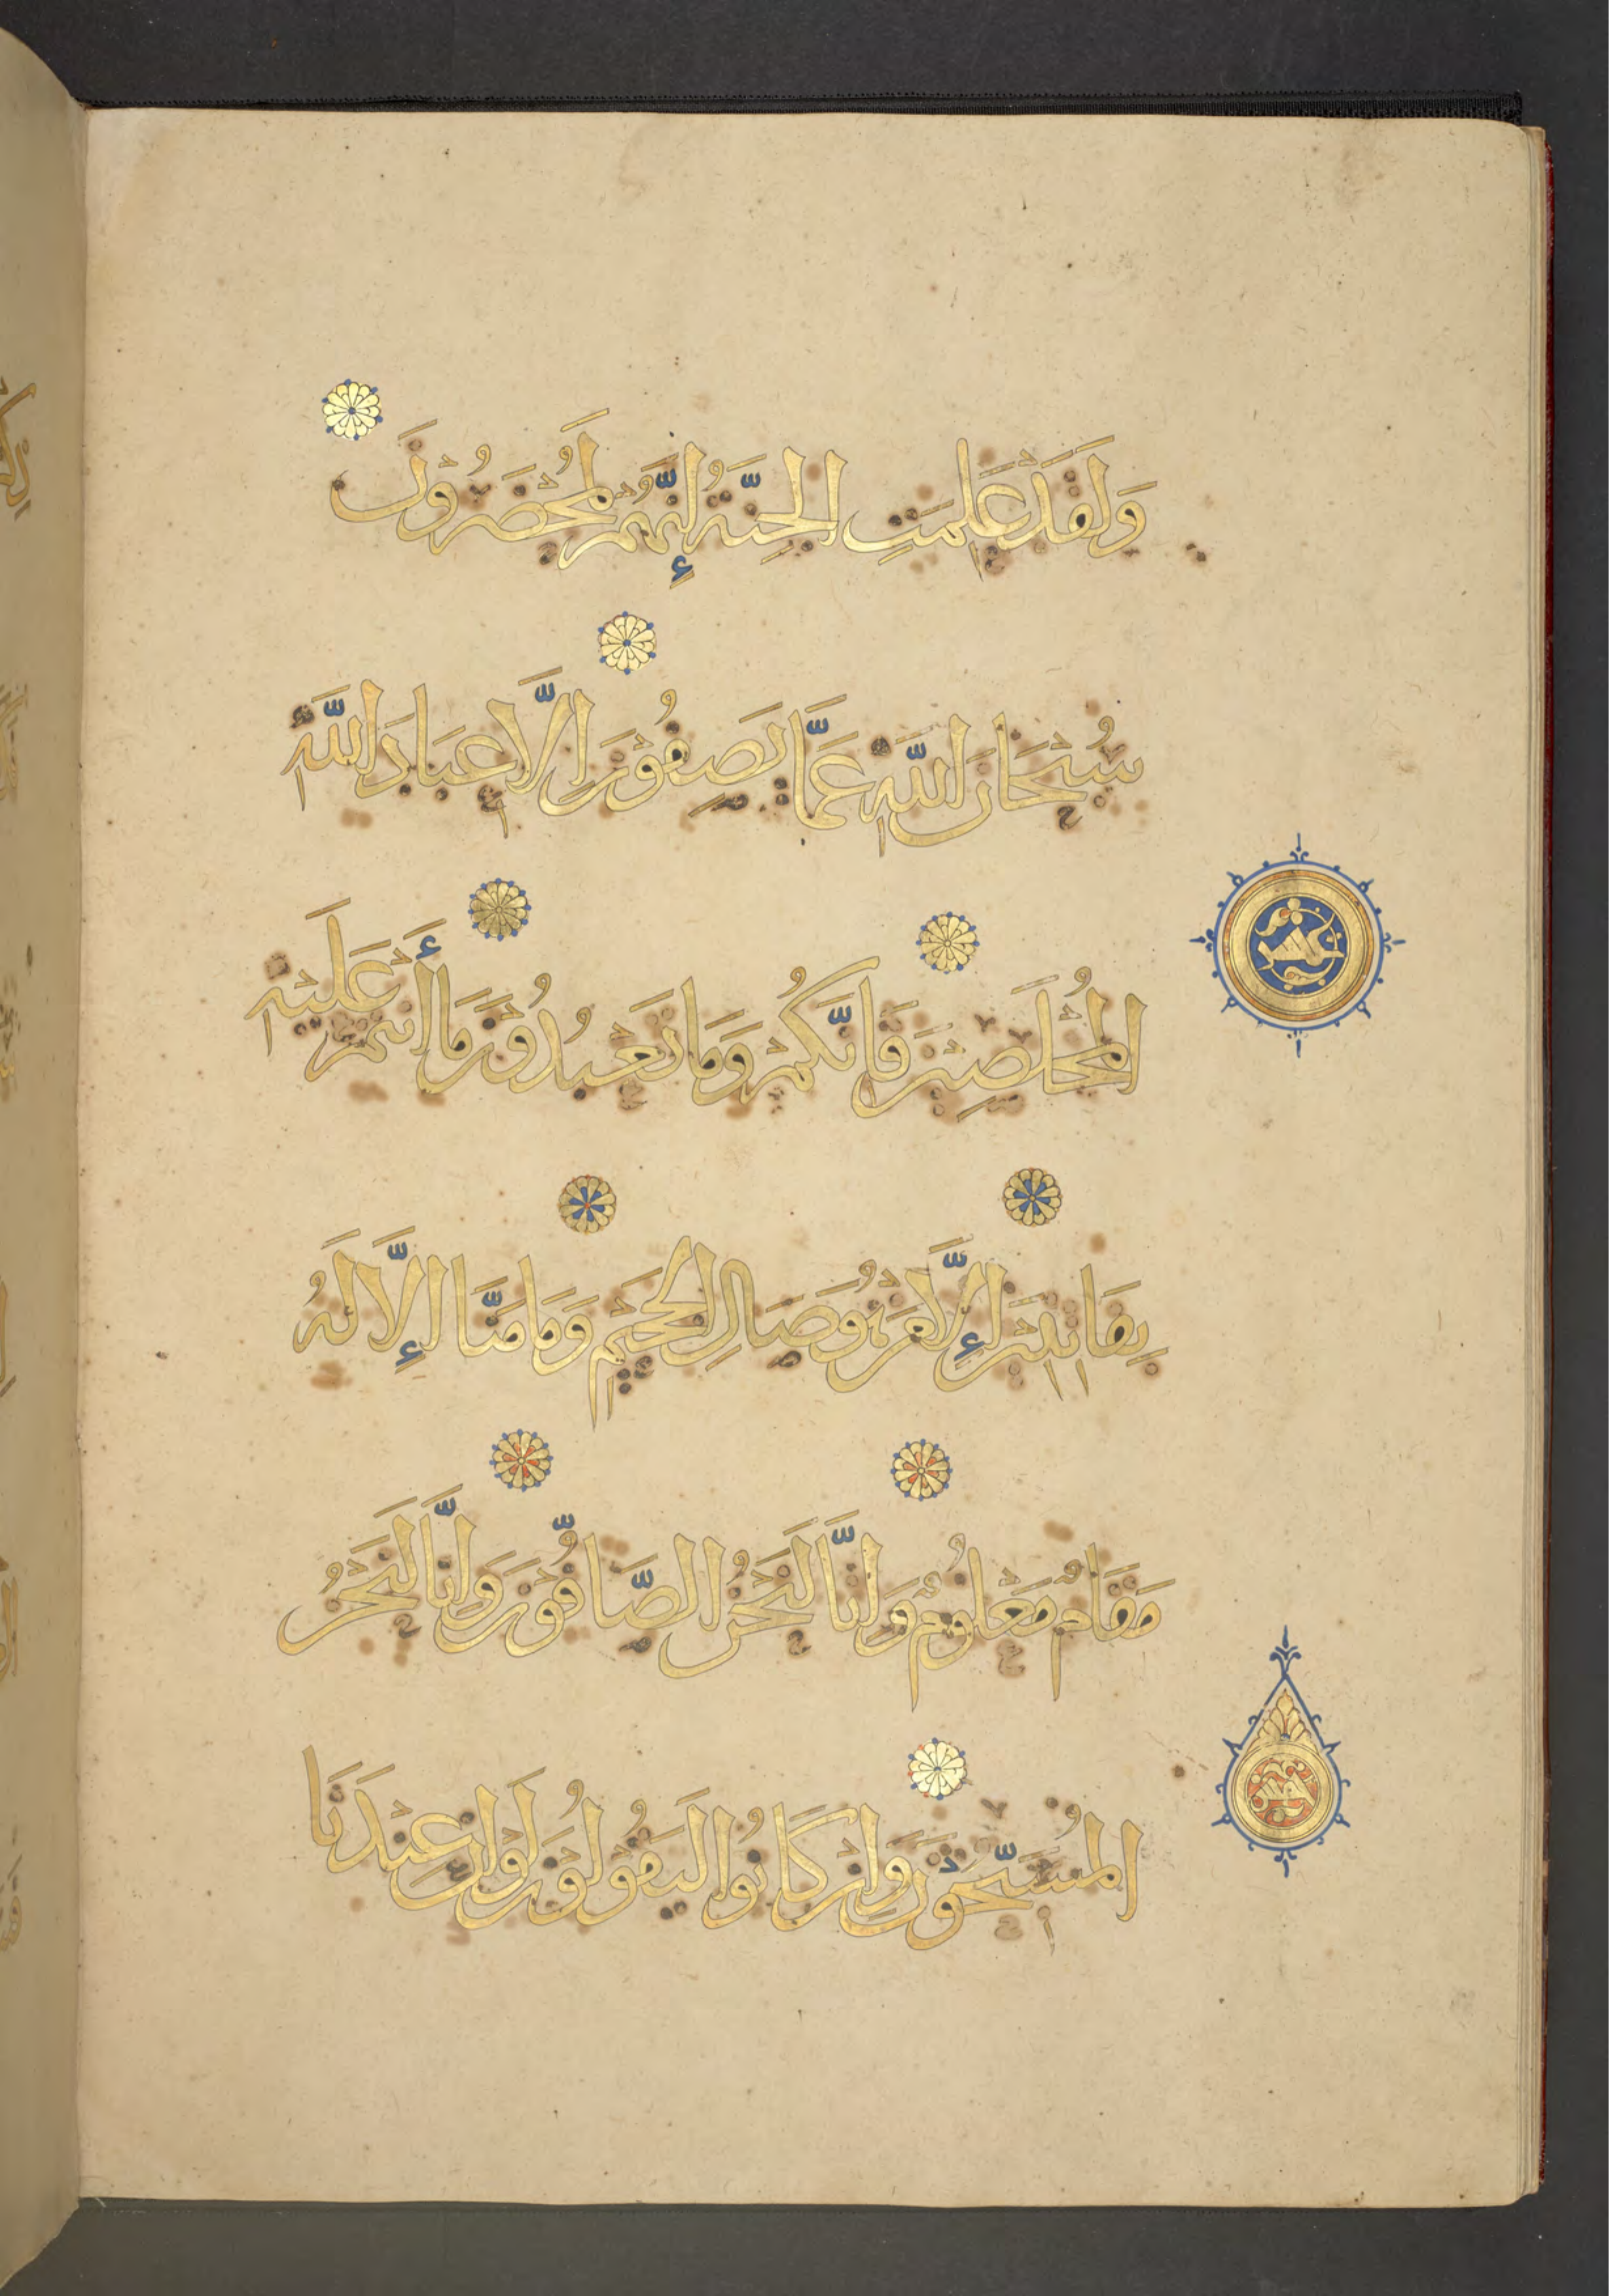 وَلَقَدْ عَلِمَتِ الْجِنَّةُ إِنَّهُمْ لَمُحْضَرُونَ
سُبْحَانَ اللَّهِ عَمَّا يَصِفُونَ إِلَّا عِبَادَ اللَّهِ
الْمُخْلَصِينَ فَإِنَّكُمْ وَمَا تَعْبُدُونَ مَا أَنْتُمْ عَلَيْهِ
بِفَاتِنِينَ إِلَّا مَنْ هُوَ صَالِ الْجَحِيمِ وَمَا مِنَّا إِلَّا لَهُ
مَقَامٌ مَعْلُومٌ وَإِنَّا لَنَحْنُ الصَّافُّونَ وَإِنَّا لَنَحْنُ
الْمُسَبِّحُونَ وَإِنْ كَانُوا لَيَقُولُونَ لَوْ أَنَّ عِنْدَنَا